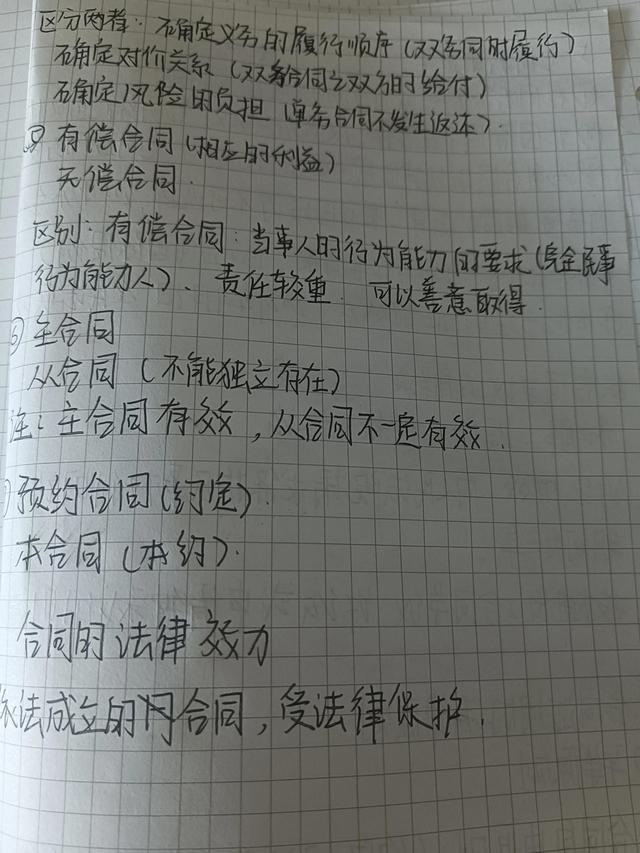 区分两者：确定义务的履行顺序（双务同时履行）
确定对价关系（双务合同之双务的给付）
确定风险的负担（单务合同不发生返还）.
有偿合同（相应的利益）
无偿合同.
区别：有偿合同：当事人的行为能力的要求（完全民事
行为能力人）、责任较重 可以善意取得.
⑥ 主合同
从合同（不能独立存在）
注：主合同有效，从合同不一定有效.
预约合同（约定）.
本合同（本约）.
合同的法律效力
依法成立的合同，受法律保护.